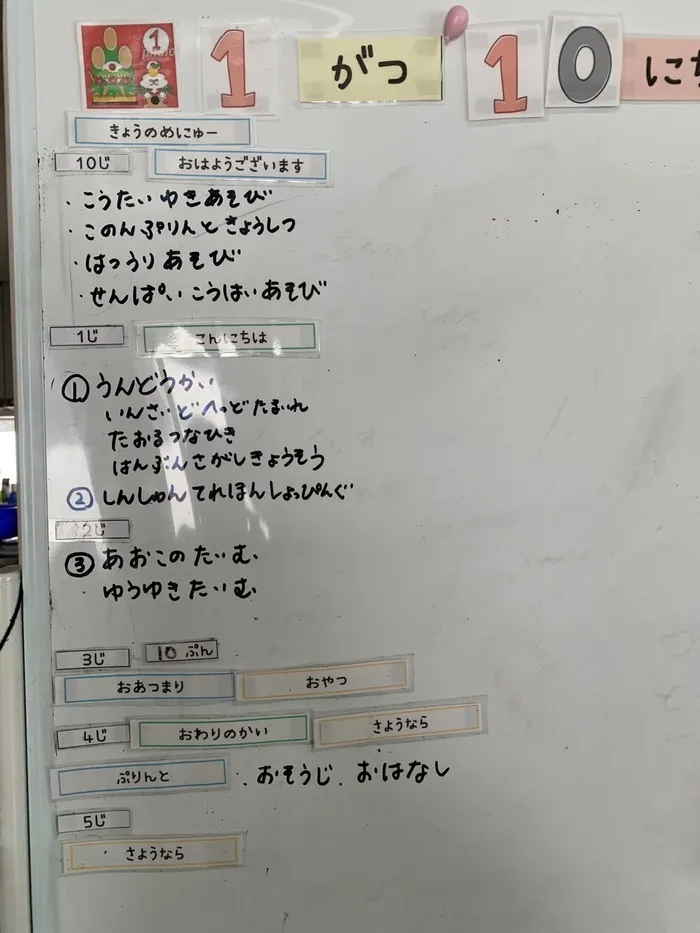 1 1 がつ 10 にち
きょうのめにゅー
10じ おはようございます
・こうたい ゆきあそび
・このん ぷりんと きょうしつ
・はつうり あそび
・せんぱい こうはい あそび
1じ こんにちは
① うんどうかい
いんさいど へっど たまいれ
たおるつなひき
はんぶんさがしきょうそう
② しんしゅん てれほん しょっぴんぐ
2じ
③ あおこのたいむ
・ゆうゆきたいむ
3じ 10 ぷん
おあつまり おやつ
4じ おわりのかい さようなら
ぷりんと ・おそうじ・おはなし
5じ
さようなら